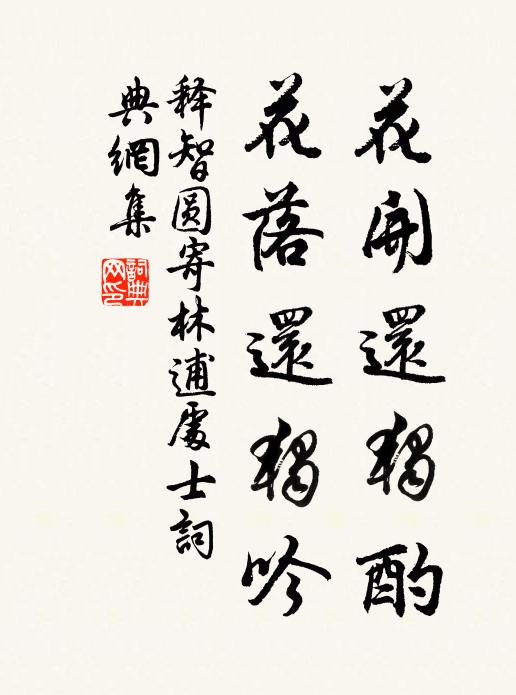 花開還獨酌
花落還獨吟
释智圆寄林逋處士詞
典網集
詞典
网印